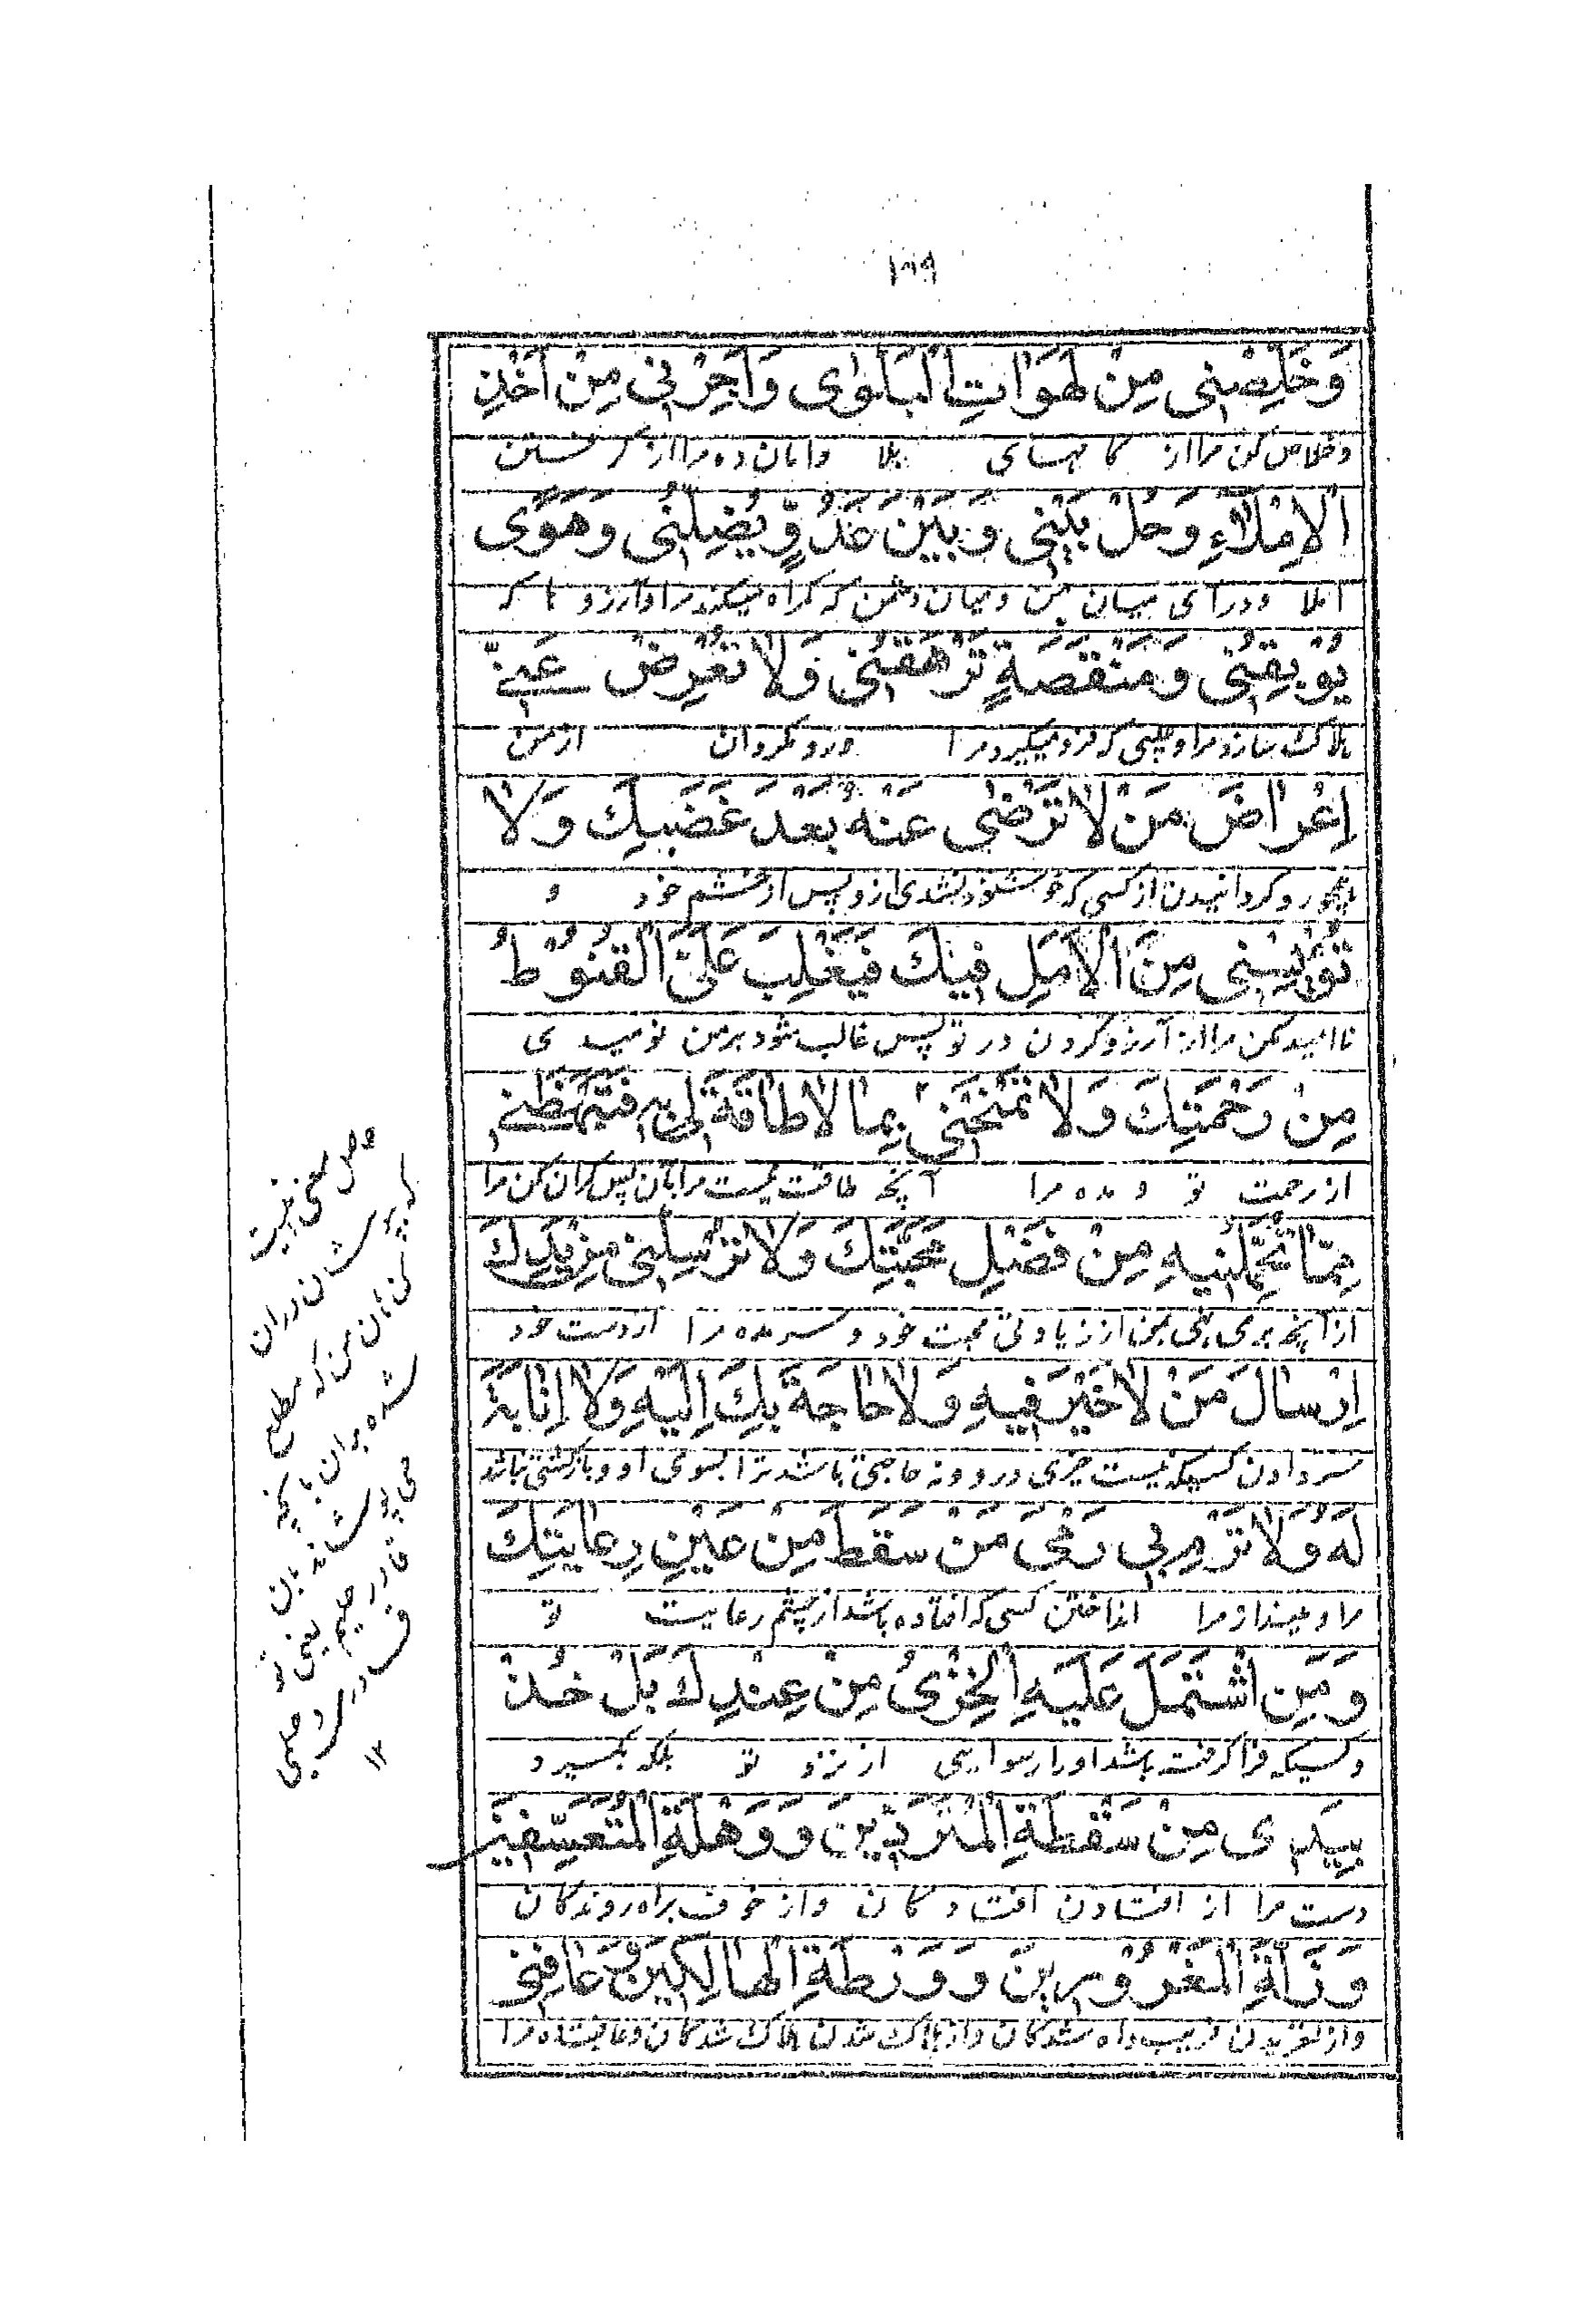 ١٦٩
وَخَلِّصْنِى مِنْ لَهَوَاتِ الْبَلْوٰى وَاَجِرْنِى مِنْ اَخْذِ
وخلاص کن مرا از کامهای بلا وامان ده مرا از گرفتن
الْاِمْلَآءِ وَحُلْ بَيْنِى وَبَيْنَ عَدُوٍّ يُضِلُّنِى وَهَوًى
املا ودرآی میان من ومیان دشمن که گمراه میکند مرا وآرزو تا که
يُوْبِقُنِى وَمَنْقَصَةٍ تَرْهَقُنِى وَلَا تُعْرِضْ عَنِّى
هلاک سازد مرا و که فرو میگیرد مرا ورو مگردان ازمن
اِعْرَاضَ مَنْ لَا تَرْضٰى عَنْهُ بَعْدَ غَضَبِكَ وَلَا
همچو رو گردانیدن از کسی که خوشنود نشدی ازو پس از خشم خود و
تُؤْيِسْنِى مِنَ الْاَمَلِ فِيْكَ فَيَغْلِبَ عَلَىَّ الْقُنُوْطُ
ناامید مکن مرا از آرزو کردن در تو پس غالب شود بر من نومیدی
مِنْ رَحْمَتِكَ وَلَا تَمْنَحْنِى بِمَا لَا طَاقَةَ لِى بِهِ فَتَبْهَظَنِى
از رحمت تو و مده مرا آنچه طاقت نیست مرا بآن پس گران کن مرا
مِمَّا تُحَمِّلُنِيهِ مِنْ فَضْلِ مَحَبَّتِكَ وَلَا تُرْسِلْنِى مِنْ يَدِكَ
ازآنچه از زیادتی محبت خود و سر مده مرا از دست خود
اِرْسَالَ مَنْ لَا خَيْرَ فِيهِ وَلَا حَاجَةَ بِكَ اِلَيْهِ وَلَا اِنَابَةَ
سر دادن کسیکه نیست خیری درو ونه حاجتی باشد ترا بسوی او وبازگشتی نباشد
لَهُ وَلَا تَرْمِ بِى رَمْىَ مَنْ سَقَطَ مِنْ عَيْنِ رِعَايَتِكَ
مراو مینداز مرا انداختن کسی که افتاده باشد از چشم رعایت تو
وَمَنِ اشْتَمَلَ عَلَيْهِ الْخِزْىُ مِنْ عِنْدِكَ بَلْ خُذْ
وکسیکه فرا گرفته باشد اورا رسوایی از نزد تو بلکه بگیر و
بِيَدِى مِنْ سَقْطَةِ الْمُتَرَدِّيْنَ وَوَهْلَةِ الْمُتَعَسِّفِيْنَ
دست مرا از افتادن افتادگان واز خوف براه روندگان
وَزَلَّةِ الْمَغْرُوْرِيْنَ وَوَرْطَةِ الْهَالِكِيْنَ وَعَافِنِى
واز لغزیدن فریب داده شدگان واز هلاک شدن هلاک شدگان وعافیت ده مرا
شده بران بآنچه
قادر حلیم یعنی تو
١٢